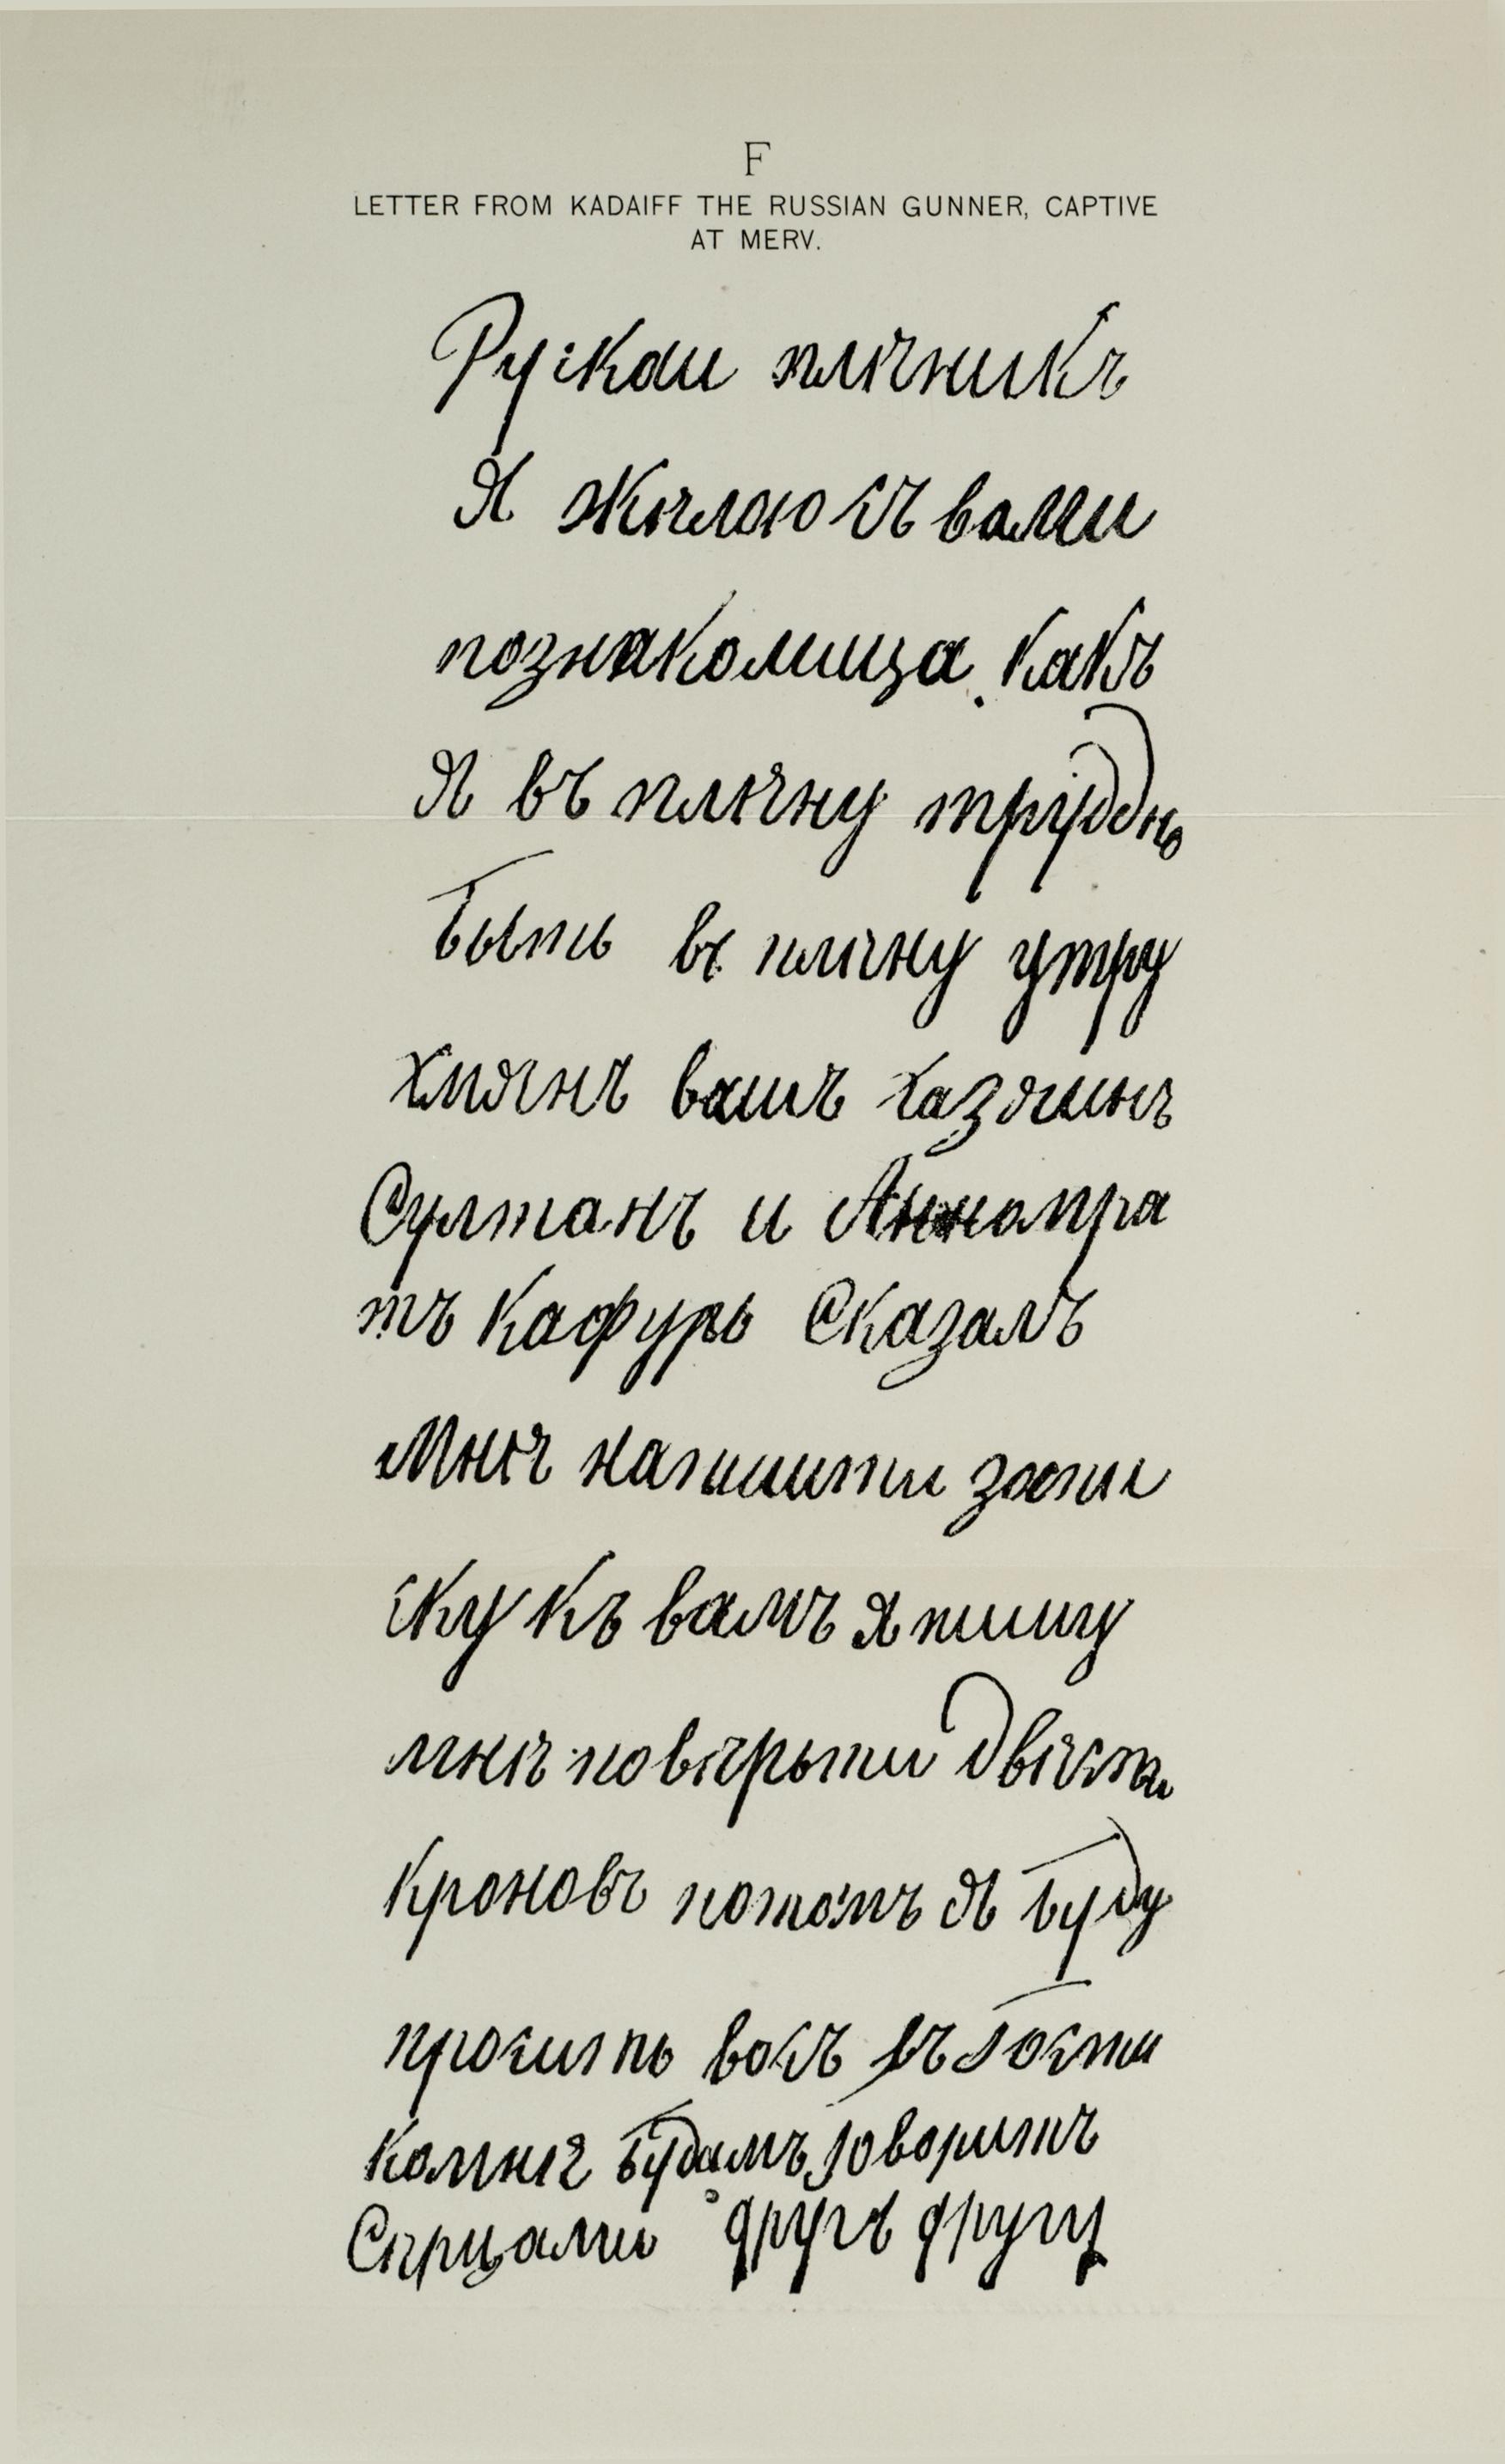 F
LETTER FROM KADAIFF THE RUSSIAN GUNNER, CAPTIVE
AT MERV.
Рускаи плѣникъ
Я жѣлаю съ вами
познакомица. какъ
Я въ плѣну трудно
быть въ плѣну утру
хмянъ вашъ хазяинъ
Султанъ и Аннапра
тъ кафуръ Сказалъ
мнѣ напишити запи
ску къ вамъ я пишу
мнѣ повѣрыти двѣсти
Кроновъ потомъ я буду
просить васъ въ гости
комнѣ будамъ говоритъ
Сѣрцами другъ другу